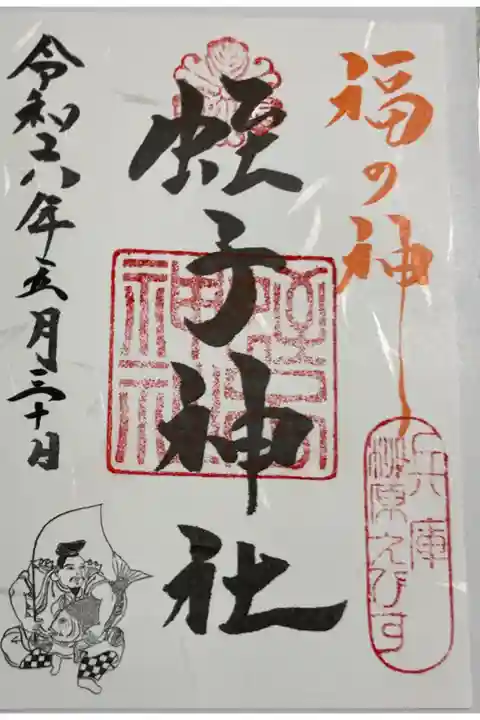 福の神
兵庫
柳原えびす
蛭子神社
蛭子神社
令和六年五月三十日